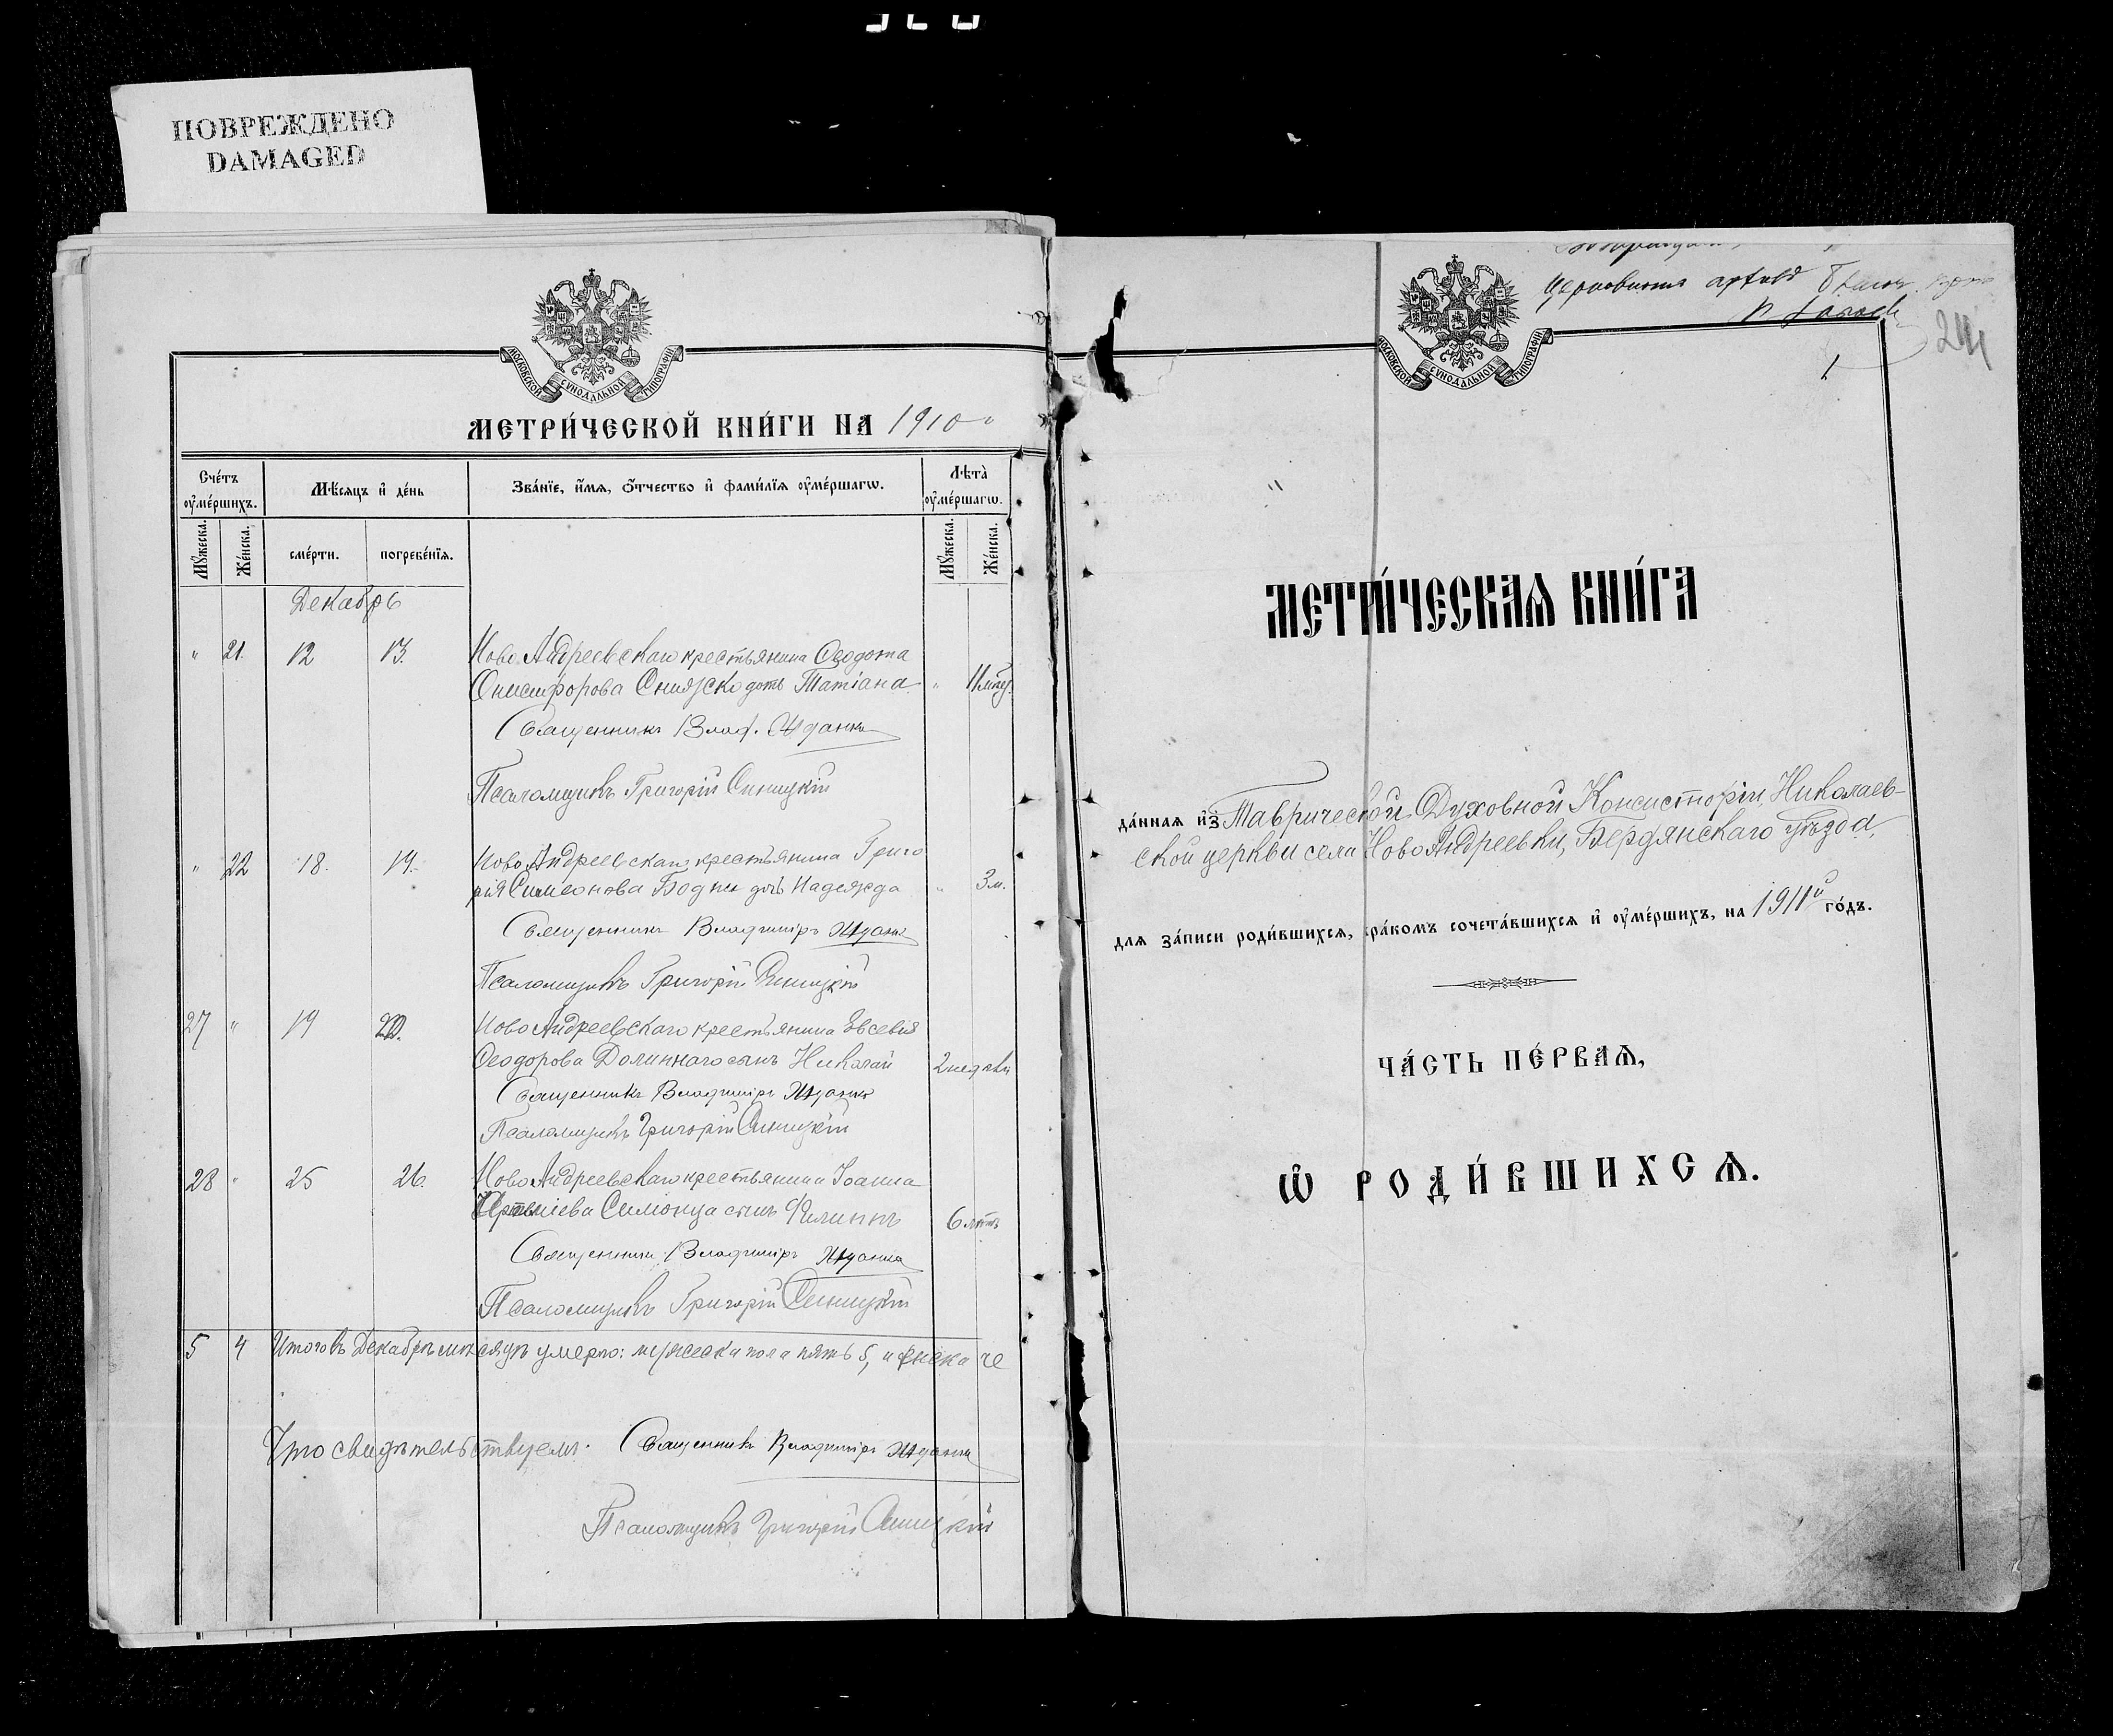 ПОВРЕЖДЕНО
DAMAGED
МОСКОВСКОЙ СѴНОДАЛЬНОЙ ТИПОГРАФІИ
МЕТРИ́ЧЕСКОЙ КНИ́ГИ НА 1910
Сче́тъ оу҆ме́ршихъ.
Мѣ́сяцъ и҆ де́нь
Зва́нїе, и҆́мѧ, ѻ҆́тчество и҆ фами́лїѧ оу҆ме́ршагѡ.
Лѣта̀ оу҆ме́ршагѡ.
Мꙋ́жеска.
Же́нска.
сме́рти.
погребе́нїѧ.
Мꙋ́жеска.
Же́нска.
Декабрь
" 21. 12 13. Ново Андреевскаго крестьянина Ѳеодота
Онисифорова дочь Татіана "
Священникъ Влад. Жданка
Псаломщикъ Григорій Синицкій
" 22 18. 19. Ново Андреевскаго крестьянина Григо
рія Симеонова Бодни дочь Надежда " 3 м.
Священникъ Владиміръ Жданка
Псаломщикъ Григорій Синицкій
27 " 19 20. Ново Андреевскаго крестьянина Евсевія
Ѳеодорова Долиннаго сынъ Николай 2 недѣли
Священникъ Владиміръ Жданка
Псаломщикъ Григорій Синицкій
28 " 25 26. Ново Андреевскаго крестьянина Іоанна
Симонца сынъ Филиппъ 6 лѣтъ
Священникъ Владиміръ Жданка
Псаломщикъ Григорій Синицкій
5 4 Итого въ Декабрѣ мѣсяцѣ умерло: мужеска пола пять 5, женска че
Что свидѣтельствуемъ: Священникъ Владиміръ Жданка
Псаломщикъ Григорій Синицкій
МОСКОВСКОЙ СѴНОДАЛЬНОЙ ТИПОГРАФІИ
1
МЕТРИ́ЧЕСКАѦ КНИ́ГА
да́ннаѧ и҆з̾ Таврической Духовной Консисторіи, Николаев-
ской церкви села Ново Андреевки, Бердянскаго уѣзда,
длѧ за́писи роди́вшихсѧ, бра́комъ сочета́вшихсѧ и҆ оу҆ме́ршихъ, на 1911й го́дъ.
ЧА́СТЬ ПЕ́РВАѦ,
Ѡ҆ РОДИ́ВШИХСѦ.